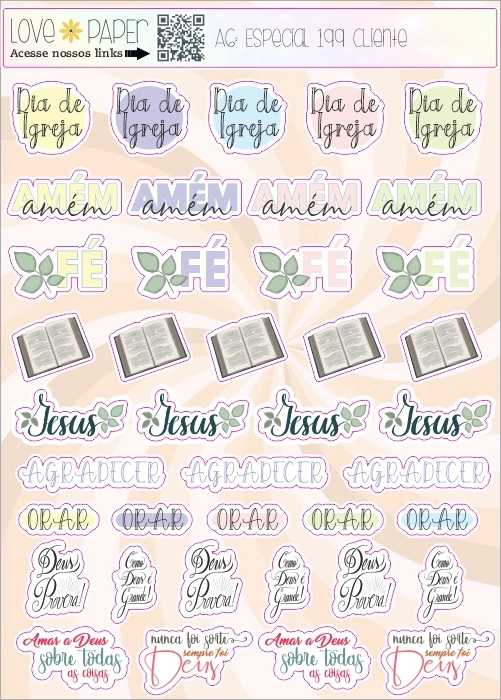 LOVE PAPER
Acesse nossos links
AG: ESPECIAL 199 CLIENTE
Dia de Dia de Dia de Dia de Dia de
Igreja Igreja Igreja Igreja Igreja
AMÉM AMÉM AMÉM AMÉM
amém amém amém amém
FÉ FÉ FÉ FÉ
Jesus Jesus Jesus Jesus
AGRADECER AGRADECER AGRADECER
ORAR ORAR ORAR ORAR ORAR
Deus Como Deus Como Deus Como
Proverá! Deus é Proverá! Deus é Proverá! Deus é
Grande! Grande! Grande!
Amar a Deus nunca foi sorte Amar a Deus nunca foi sorte
sobre todas sempre foi sobre todas sempre foi
as coisas Deus as coisas Deus